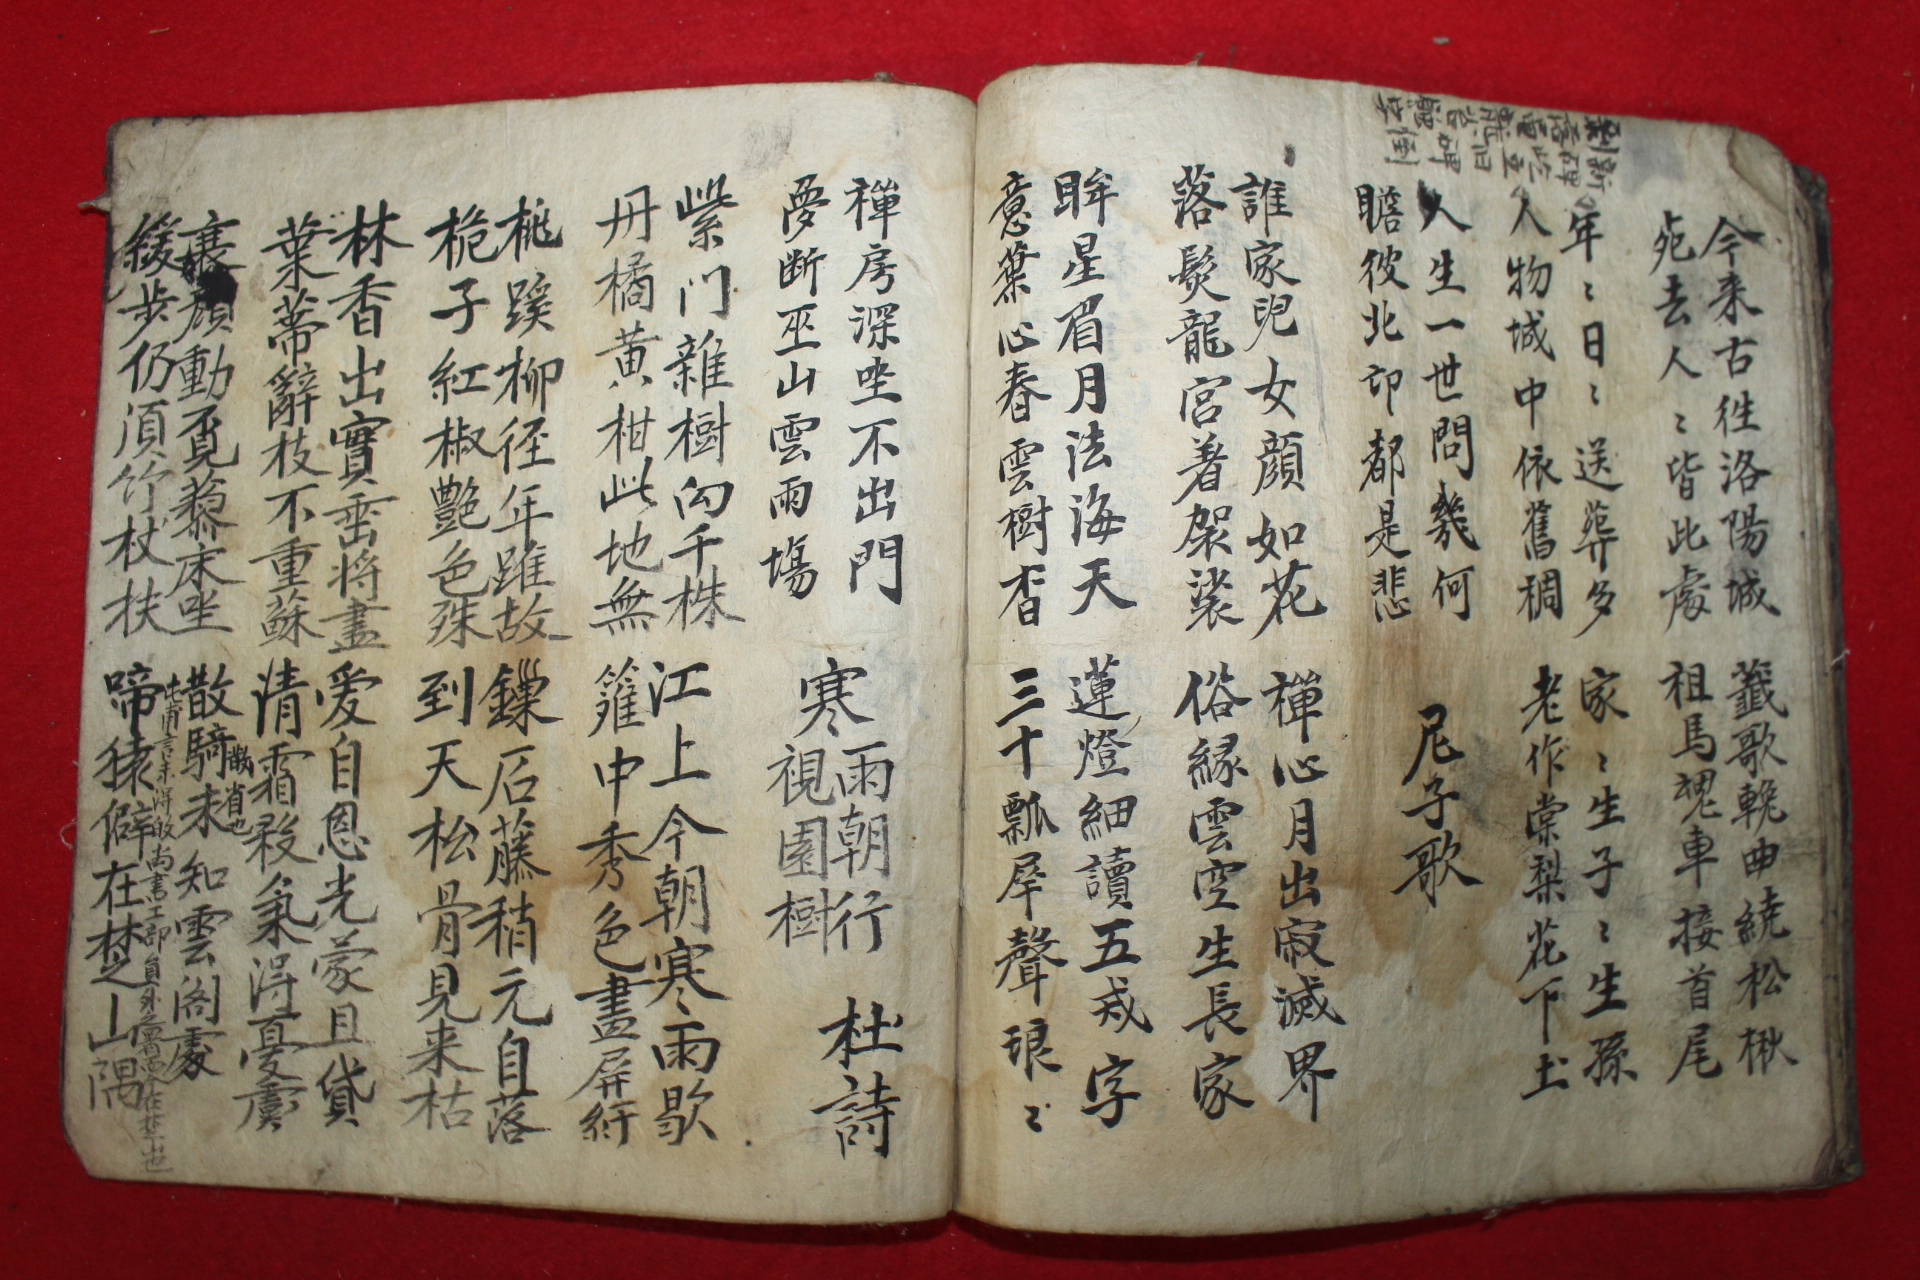 今来古徃洛陽城
死去人〻皆此處
薤歌輓曲繞松楸
祖馬魂車接首尾
年〻日〻送葬多
人物城中依舊稠
家〻生子〻生孫
老作棠梨花下土
人生一世問幾何
瞻彼北邙都是悲
尼子歌
誰家児女顔如花
落髮龍宮着袈裟
禪心月出寂滅界
俗緣雲空生長家
眸星眉月法海天
意蘂心春雲樹杳
蓮燈細讀五戒字
三十瓢犀聲琅〻
禪房深坐不出門
夢断巫山雲雨塲
寒雨朝行
視園樹
杜詩
柴门雜樹向千株
丹橘黄柑此地無
江上今朝寒雨歇
籬中秀色畫屏紆
桃蹊柳径年雖故
梔子紅椒艶色殊
鏁石藤稍元自落
到天松骨見来枯
林香出實垂将盡
葉蒂辭枝不重蘇
愛自恩光蒙且貸
清霜殺氣得憂虞
衰顔動覓藜床坐
緩步仍須竹杖扶
散騎未知雲阁處
散省也
啼猿僻在楚山隅
杜甫言未得做尚書工部員外在楚山也